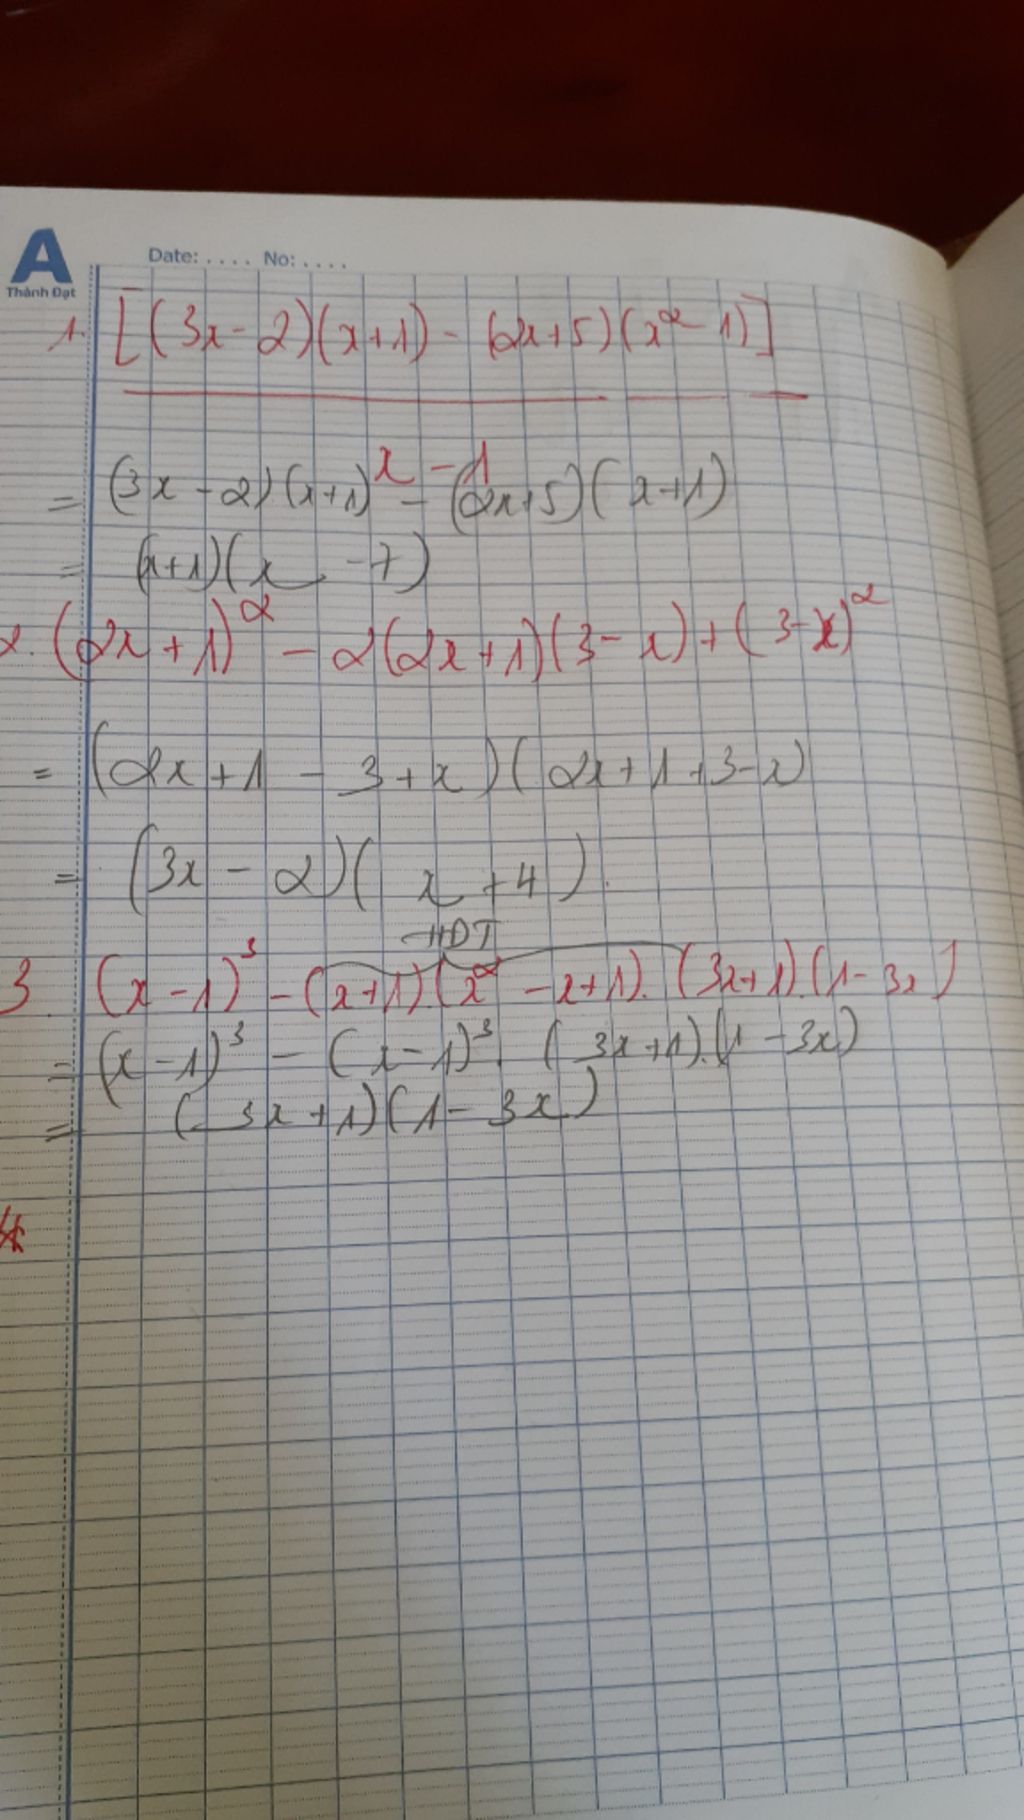 A
Thành Đạt
Date: .... No: ....
1. [(3x-2)(x+1) - (2x+5)(x²-1)]
x - 1
= (3x-2)(x+1) - (2x+5)(x+1)
= (x+1)(x -7)
2. (2x+1)² - 2(2x+1)(3-x) + (3-x)²
= (2x+1 - 3+x)(2x+1+3-x)
= (3x-2)(x+4)
HDT
3. (x-1)³ - (x+1).(x² -x+1).(3x+1).(1-3x)
= (x-1)³ - (x-1)³. (3x+1).(1-3x)
= (3x+1)(1-3x)